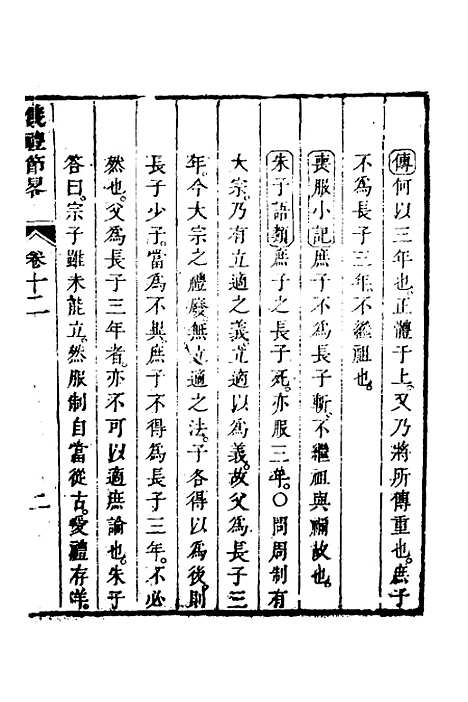 傳何以三年也。正體于上。又乃將所傳重也。庶子
不爲長子三年。不繼祖也。
喪服小記庶子不爲長子斬。不繼祖與禰故也。
朱子語類庶子之長子死。亦服三年。〇問周制有
大宗。乃有立適之義。立適以爲義。故父爲長子三
年。今大宗之禮廢。無立適之法。子各得以爲後。則
長子少子。當爲不異。庶子不得爲長子三年。不必
然也。父爲長子三年者。亦不可以適庶論也。朱子
答曰。宗子雖未能立。然服制自當從古。愛禮存羊。
儀禮節畧
卷十二
二